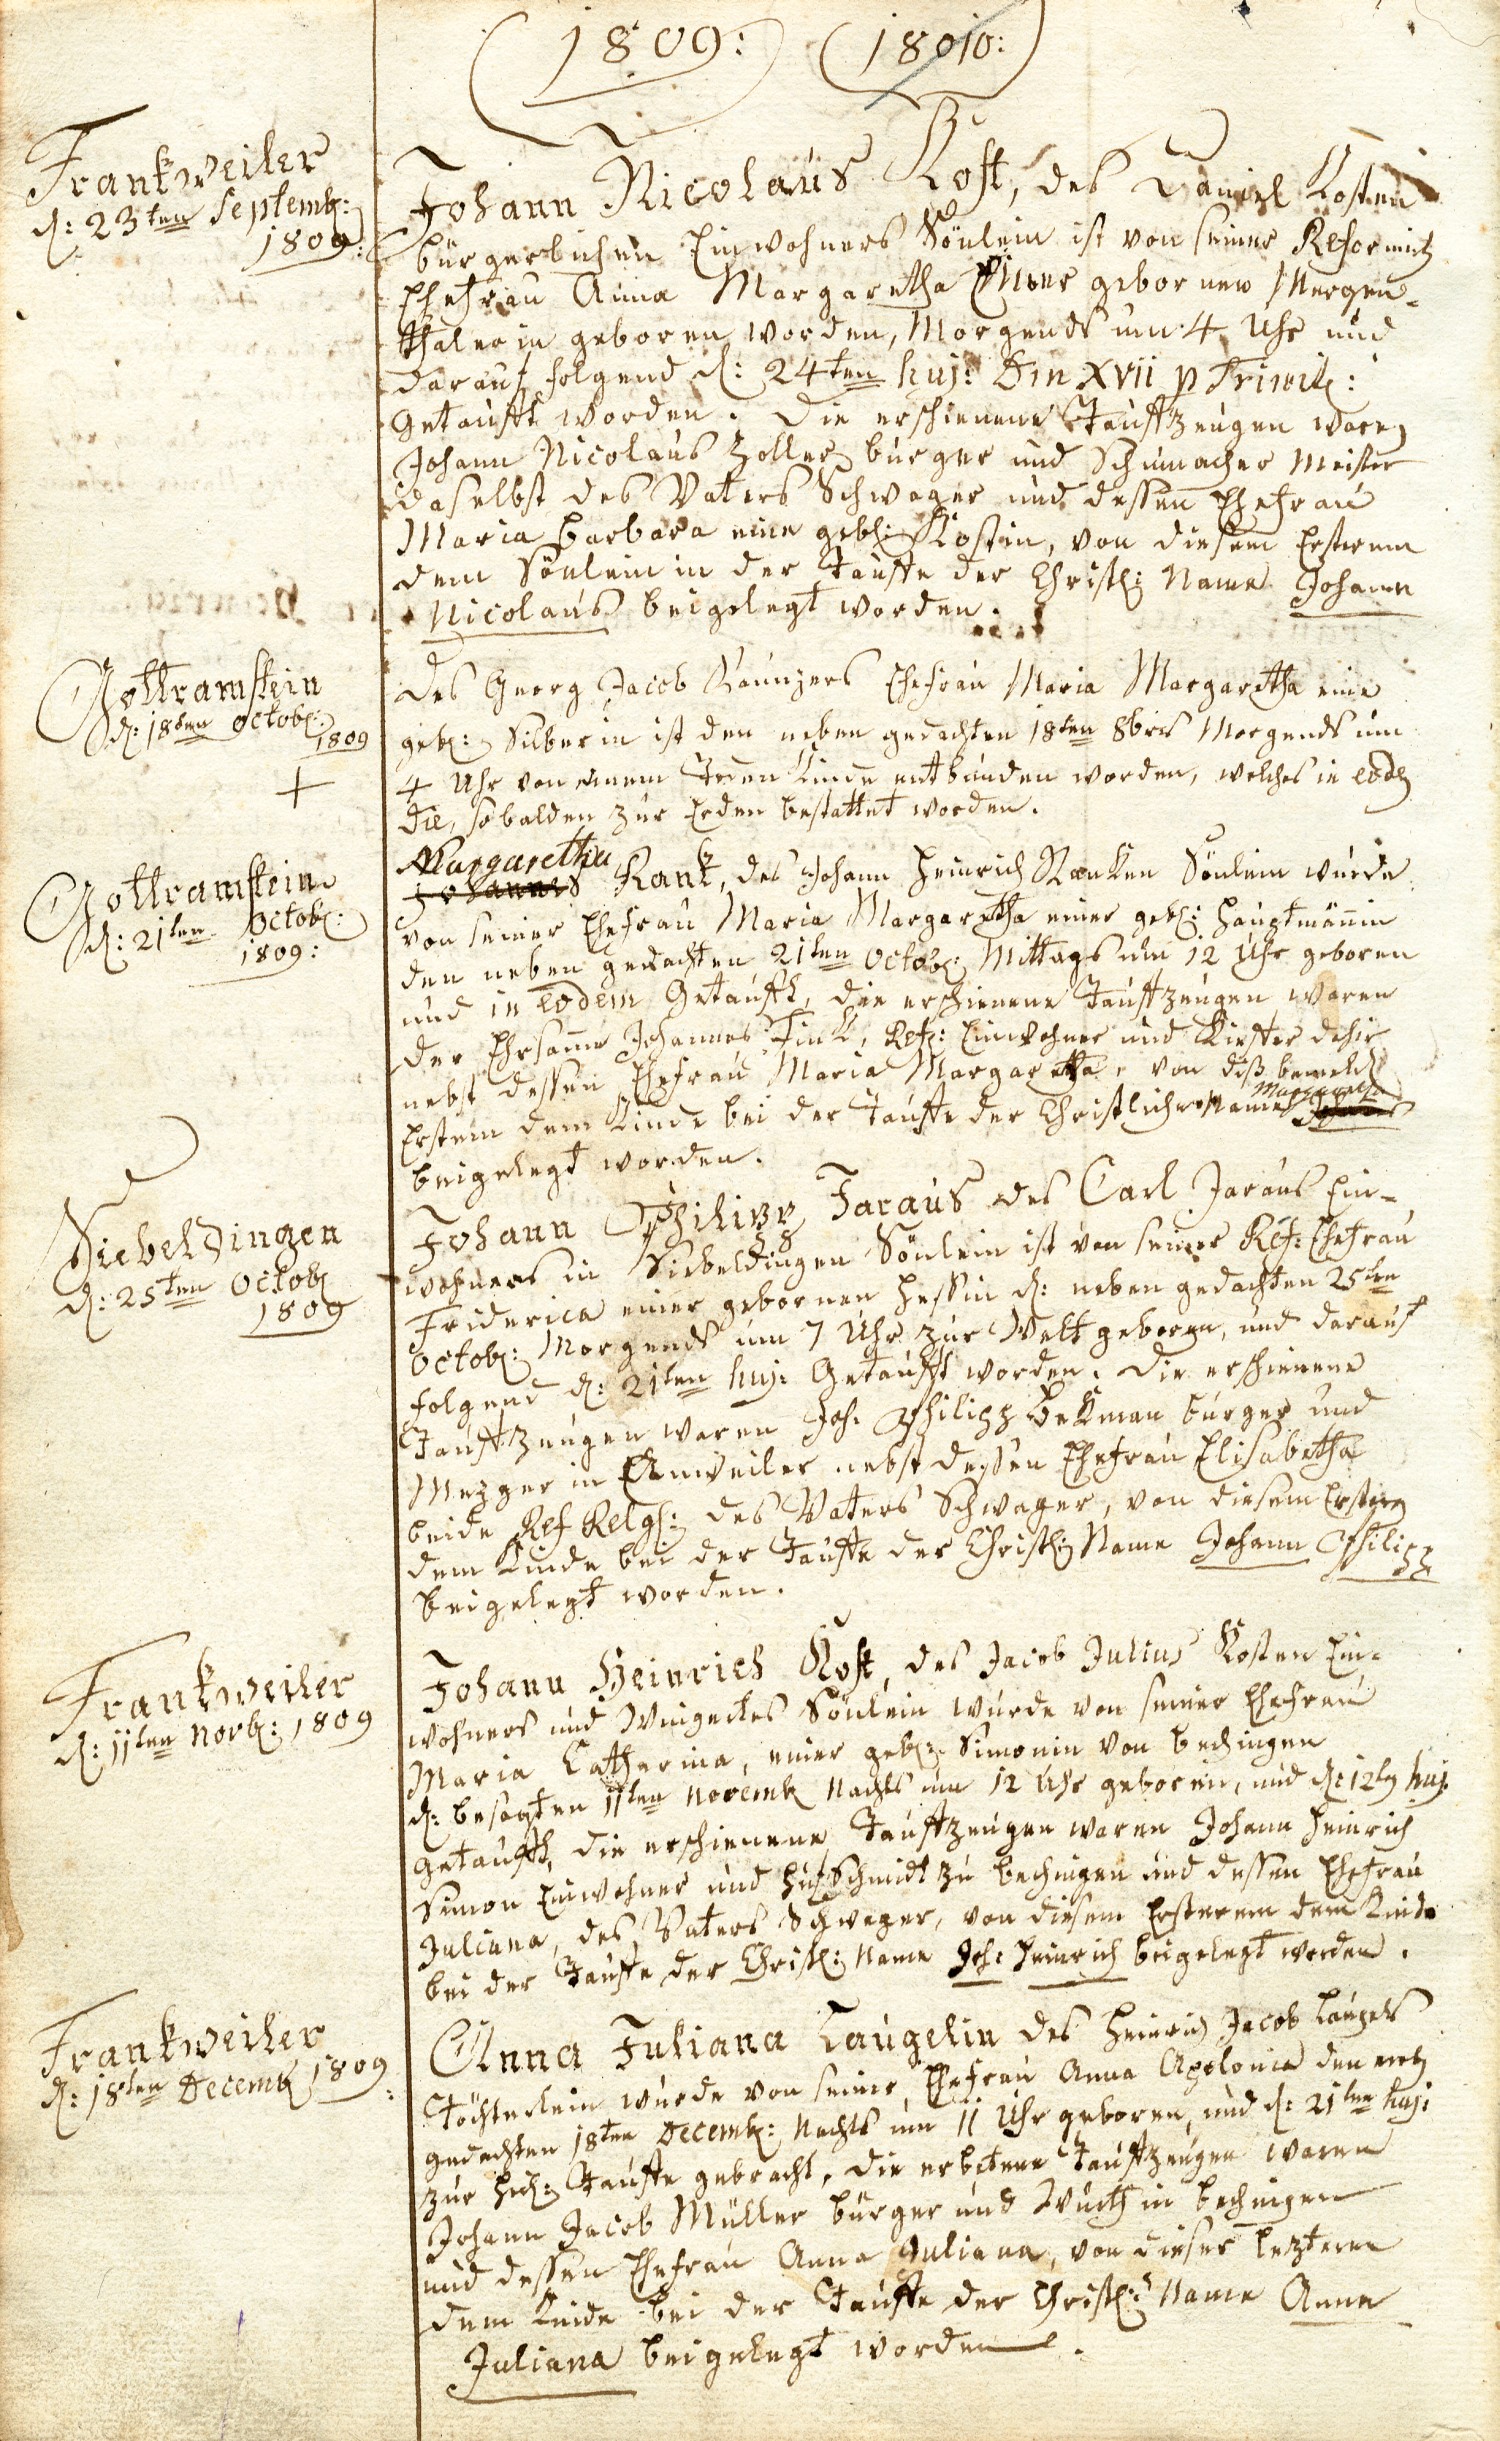 1809: 18010:
Frankweiler
d: 23ten Septemb:
1809:
Johann Nicolaus Kost, des Daniel Kosten
bürgerlichen Einwohners Sönlein ist von seiner Reformirt
Ehefrau Anna Margaretha einer gebornen Mergen-
thalerin geboren worden, Morgends um 4 Uhr und
darauf folgend d: 24ten huj: Dm XVII p Trinit:
Getaufft worden. Die erschienene Tauffzeugen waren
Johann Nicolaus Zoller bürger und Schumacher Meister
daselbst des Vaters Schwager und dessen Ehefrau
Maria Barbara eine geb: Kostin, von diesem Ersterem
dem Sönlein in der Tauffe der Christl: Name Johann
Nicolaus beigelegt worden.
Gottramstein
d: 18ten Octob:
1809
+
des Georg Jacob Ehefrau Maria Margaretha eine
geb: Silberin ist den neben gedachten 18ten 8bris Morgends um
4 Uhr von einem Toden Kinde entbunden worden, welches in eod
die, sobalden zur Erden bestattet worden.
Gottramstein
d: 21ten Octob:
1809:
Margaretha
Johannes Rank, des Johann Heinrich Ranken Sönlein wurde
von seiner Ehefrau Maria Margaretha einer geb: Hauptmännin
den neben gedachten 21ten Octob: Mittags um 12 Uhr geboren
und in eodem Getaufft, die erschienene Tauffzeugen waren
der Ehrsame Johannes Fink, Ref: Einwohner und Kiefer dahir
nebst dessen Ehefrau Maria Margaretha, von
Erstem dem Kinde bei der Tauffe der Christliche Name Margareth
beigelegt worden.
Siebeldingen
d: 25ten Octob
1809
Johann Philipp Jaraus des Carl Jaraus Ein-
wohners in Siebeldingen Sönlein ist von seiner Ref: Ehefrau
Friderica einer gebornen Hessin d: neben gedachten 25ten
Octob: Morgends um 7 Uhr zur Welt geboren, und darauf
folgend d: 21ten huj: Getaufft worden. Die erschienene
Tauffzeugen waren Joh. Philipp Bekman bürger und
Mezger in Anweiler nebst dessen Ehefrau Elisabetha
beide Ref Relgs: des Vaters Schwager, von diesem Ersteren
dem Kinde bei der Tauffe der Christl: Name Johann Philipp
beigelegt worden.
Frankweiler
d: 11ten Novb: 1809
Johann Heinrich Kost, des Jacob Julius Kosten Ein-
wohners und Sönlein wurde von seiner Ehefrau
Maria Catharina, einer geb: Simonin von bechingen
d: besagten 11ten Novemb Nachts um 12 Uhr geboren, und d: 12ten huj.
getaufft, die erschienene Tauffzeugen waren Johann Heinrich
Simon Einwohner und Hufschmidt zu bechingen und dessen Ehefrau
Juliana, des Vaters Schwager, von diesem Ersterem dem Kinde
bei der Tauffe der Christl: Name Joh: Heinrich beigelegt worden.
Frankweiler
d: 18ten Decemb 1809
Anna Juliana Laugelin des Heinrich Jacob Laugels
Töchterlein wurde von seiner Ehefrau Anna Apolonia den
gedachten 18ten Decemb: Nachts um 11 Uhr geboren, und d: 21ten huj:
zur Tauffe gebracht, die erbetene Tauffzeugen waren
Johann Jacob Müller bürger und Würth in bechingen
und dessen Ehefrau Anna Juliana, von dieser lezteren
dem Kinde bei der Tauffe der Christl: Name Anna
Juliana beigelegt worden.